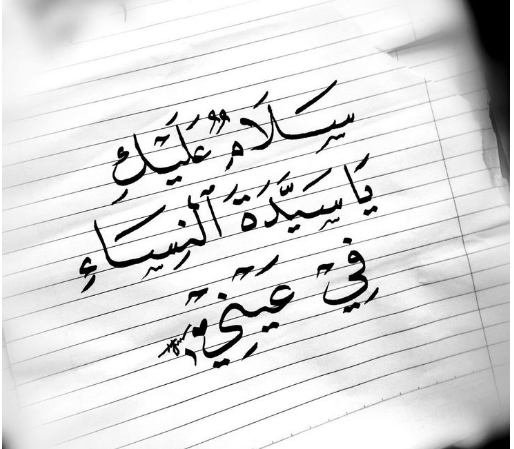 سَلَامٌ عَلَيْكِ
يَا سَيِّدَةَ ٱلنِّسَاءِ
فِي عَيْنِي